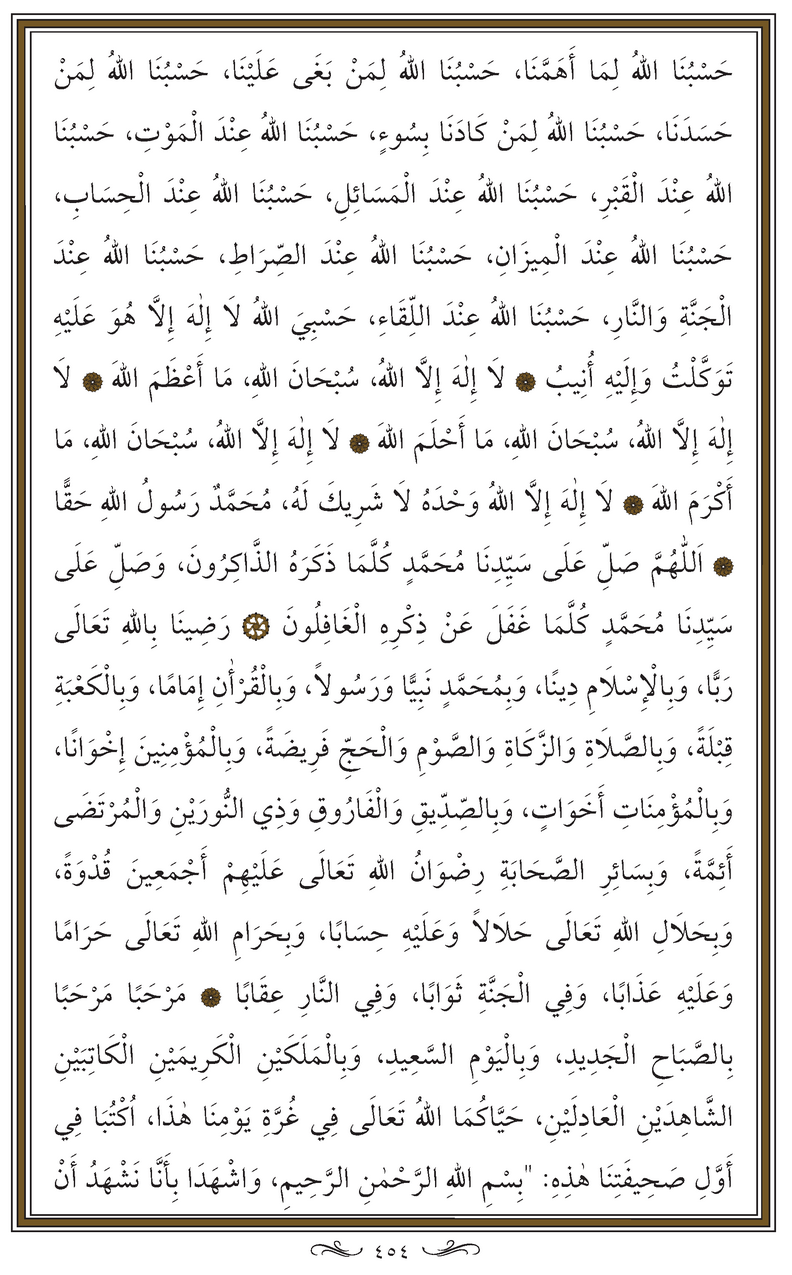 حَسْبُنَا اللهُ لِمَا أَهَمَّنَا، حَسْبُنَا اللهُ لِمَنْ بَغَى عَلَيْنَا، حَسْبُنَا اللهُ لِمَنْ
حَسَدَنَا، حَسْبُنَا اللهُ لِمَنْ كَادَنَا بِسُوءٍ، حَسْبُنَا اللهُ عِنْدَ الْمَوْتِ، حَسْبُنَا
اللهُ عِنْدَ الْقَبْرِ، حَسْبُنَا اللهُ عِنْدَ الْمَسَائِلِ، حَسْبُنَا اللهُ عِنْدَ الْحِسَابِ،
حَسْبُنَا اللهُ عِنْدَ الْمِيزَانِ، حَسْبُنَا اللهُ عِنْدَ الصِّرَاطِ، حَسْبُنَا اللهُ عِنْدَ
الْجَنَّةِ وَالنَّارِ، حَسْبُنَا اللهُ عِنْدَ اللِّقَاءِ، حَسْبِيَ اللهُ لَا إِلٰهَ إِلَّا هُوَ عَلَيْهِ
تَوَكَّلْتُ وَإِلَيْهِ أُنِيبُ لَا إِلٰهَ إِلَّا اللهُ، سُبْحَانَ اللهِ، مَا أَعْظَمَ اللهَ لَا
إِلٰهَ إِلَّا اللهُ، سُبْحَانَ اللهِ، مَا أَحْلَمَ اللهَ لَا إِلٰهَ إِلَّا اللهُ، سُبْحَانَ اللهِ، مَا
أَكْرَمَ اللهَ لَا إِلٰهَ إِلَّا اللهُ وَحْدَهُ لَا شَرِيكَ لَهُ، مُحَمَّدٌ رَسُولُ اللهِ حَقًّا
اَللّٰهُمَّ صَلِّ عَلَى سَيِّدِنَا مُحَمَّدٍ كُلَّمَا ذَكَرَهُ الذَّاكِرُونَ، وَصَلِّ عَلَى
سَيِّدِنَا مُحَمَّدٍ كُلَّمَا غَفَلَ عَنْ ذِكْرِهِ الْغَافِلُونَ رَضِينَا بِاللهِ تَعَالَى
رَبًّا، وَبِالْإِسْلَامِ دِينًا، وَبِمُحَمَّدٍ نَبِيًّا وَرَسُولاً، وَبِالْقُرْأٰنِ إِمَامًا، وَبِالْكَعْبَةِ
قِبْلَةً، وَبِالصَّلَاةِ وَالزَّكَاةِ وَالصَّوْمِ وَالْحَجِّ فَرِيضَةً، وَبِالْمُؤْمِنِينَ إِخْوَانًا،
وَبِالْمُؤْمِنَاتِ أَخَوَاتٍ، وَبِالصِّدِّيقِ وَالْفَارُوقِ وَذِي النُّورَيْنِ وَالْمُرْتَضَى
أَئِمَّةً، وَبِسَائِرِ الصَّحَابَةِ رِضْوَانُ اللهِ تَعَالَى عَلَيْهِمْ أَجْمَعِينَ قُدْوَةً،
وَبِحَلَالِ اللهِ تَعَالَى حَلَالاً وَعَلَيْهِ حِسَابًا، وَبِحَرَامِ اللهِ تَعَالَى حَرَامًا
وَعَلَيْهِ عَذَابًا، وَفِي الْجَنَّةِ ثَوَابًا، وَفِي النَّارِ عِقَابًا مَرْحَبًا مَرْحَبًا
بِالصَّبَاحِ الْجَدِيدِ، وَبِالْيَوْمِ السَّعِيدِ، وَبِالْمَلَكَيْنِ الْكَرِيمَيْنِ الْكَاتِبَيْنِ
الشَّاهِدَيْنِ الْعَادِلَيْنِ، حَيَّاكُمَا اللهُ تَعَالَى فِي غُرَّةِ يَوْمِنَا هٰذَا، اُكْتُبَا فِي
أَوَّلِ صَحِيفَتِنَا هٰذِهِ: "بِسْمِ اللهِ الرَّحْمٰنِ الرَّحِيمِ، وَاشْهَدَا بِأَنَّا نَشْهَدُ أَنْ
٤٥٤